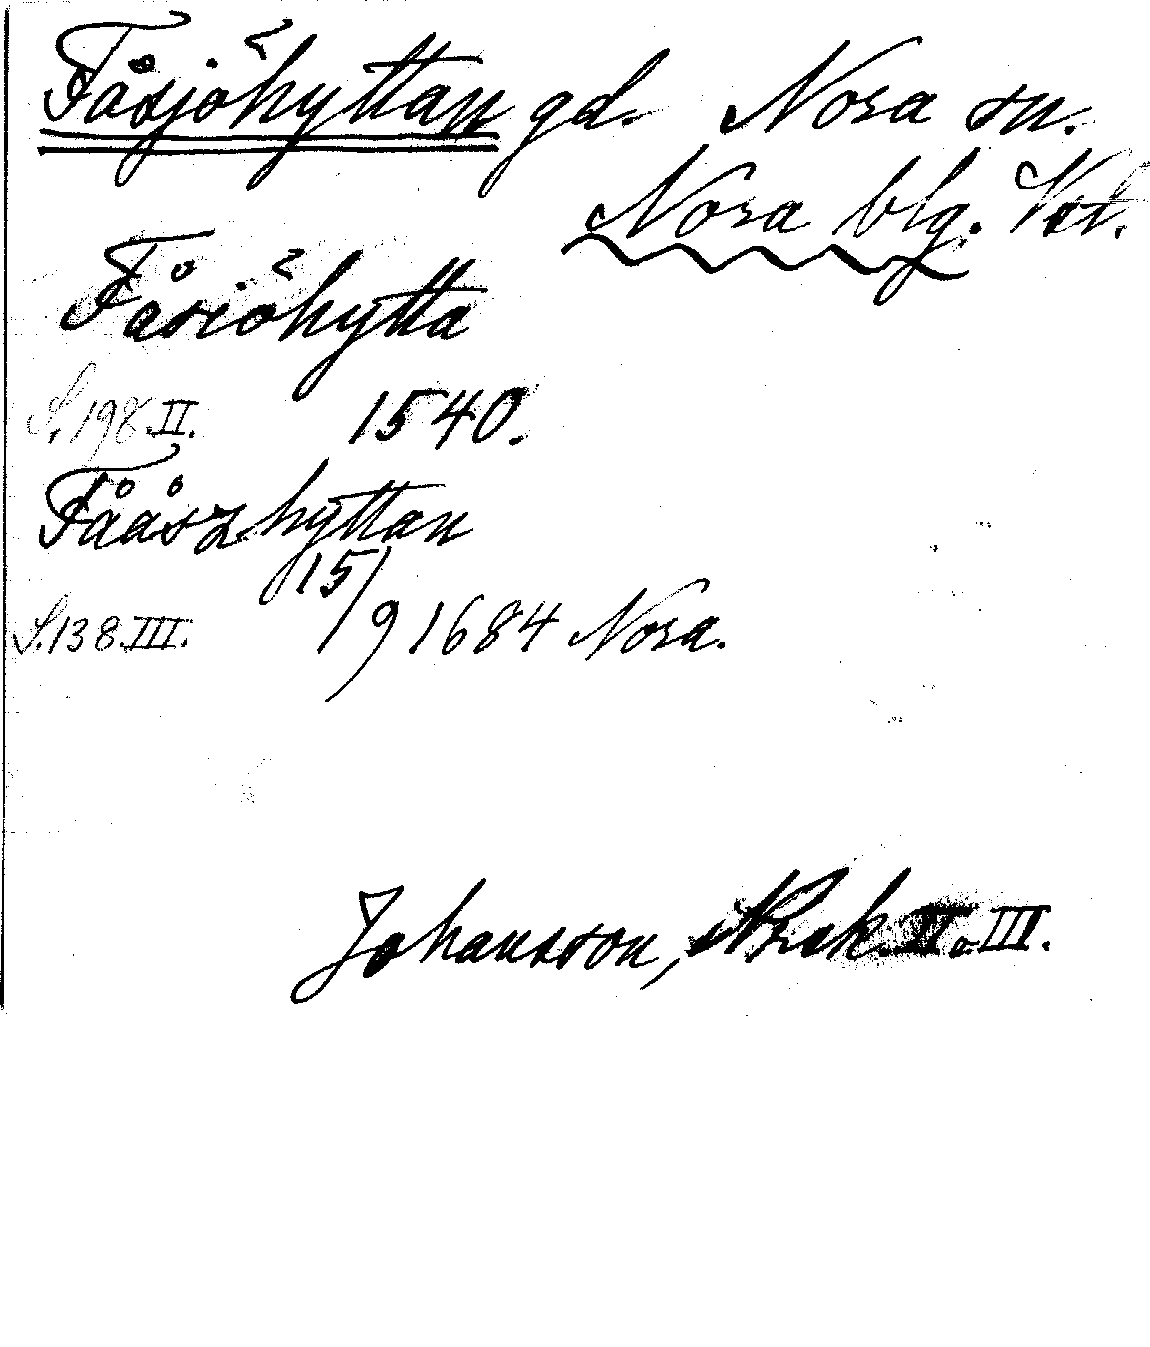 Fåsjöhyttan gd. Nora sn.
Nora blg. Vstl.
Fåsiöhytta
S. 198. II. 1540.
Fååszhyttan
S. 138. III. 15/9 1684 Nora.
Johansson, Norask. II. o. III.